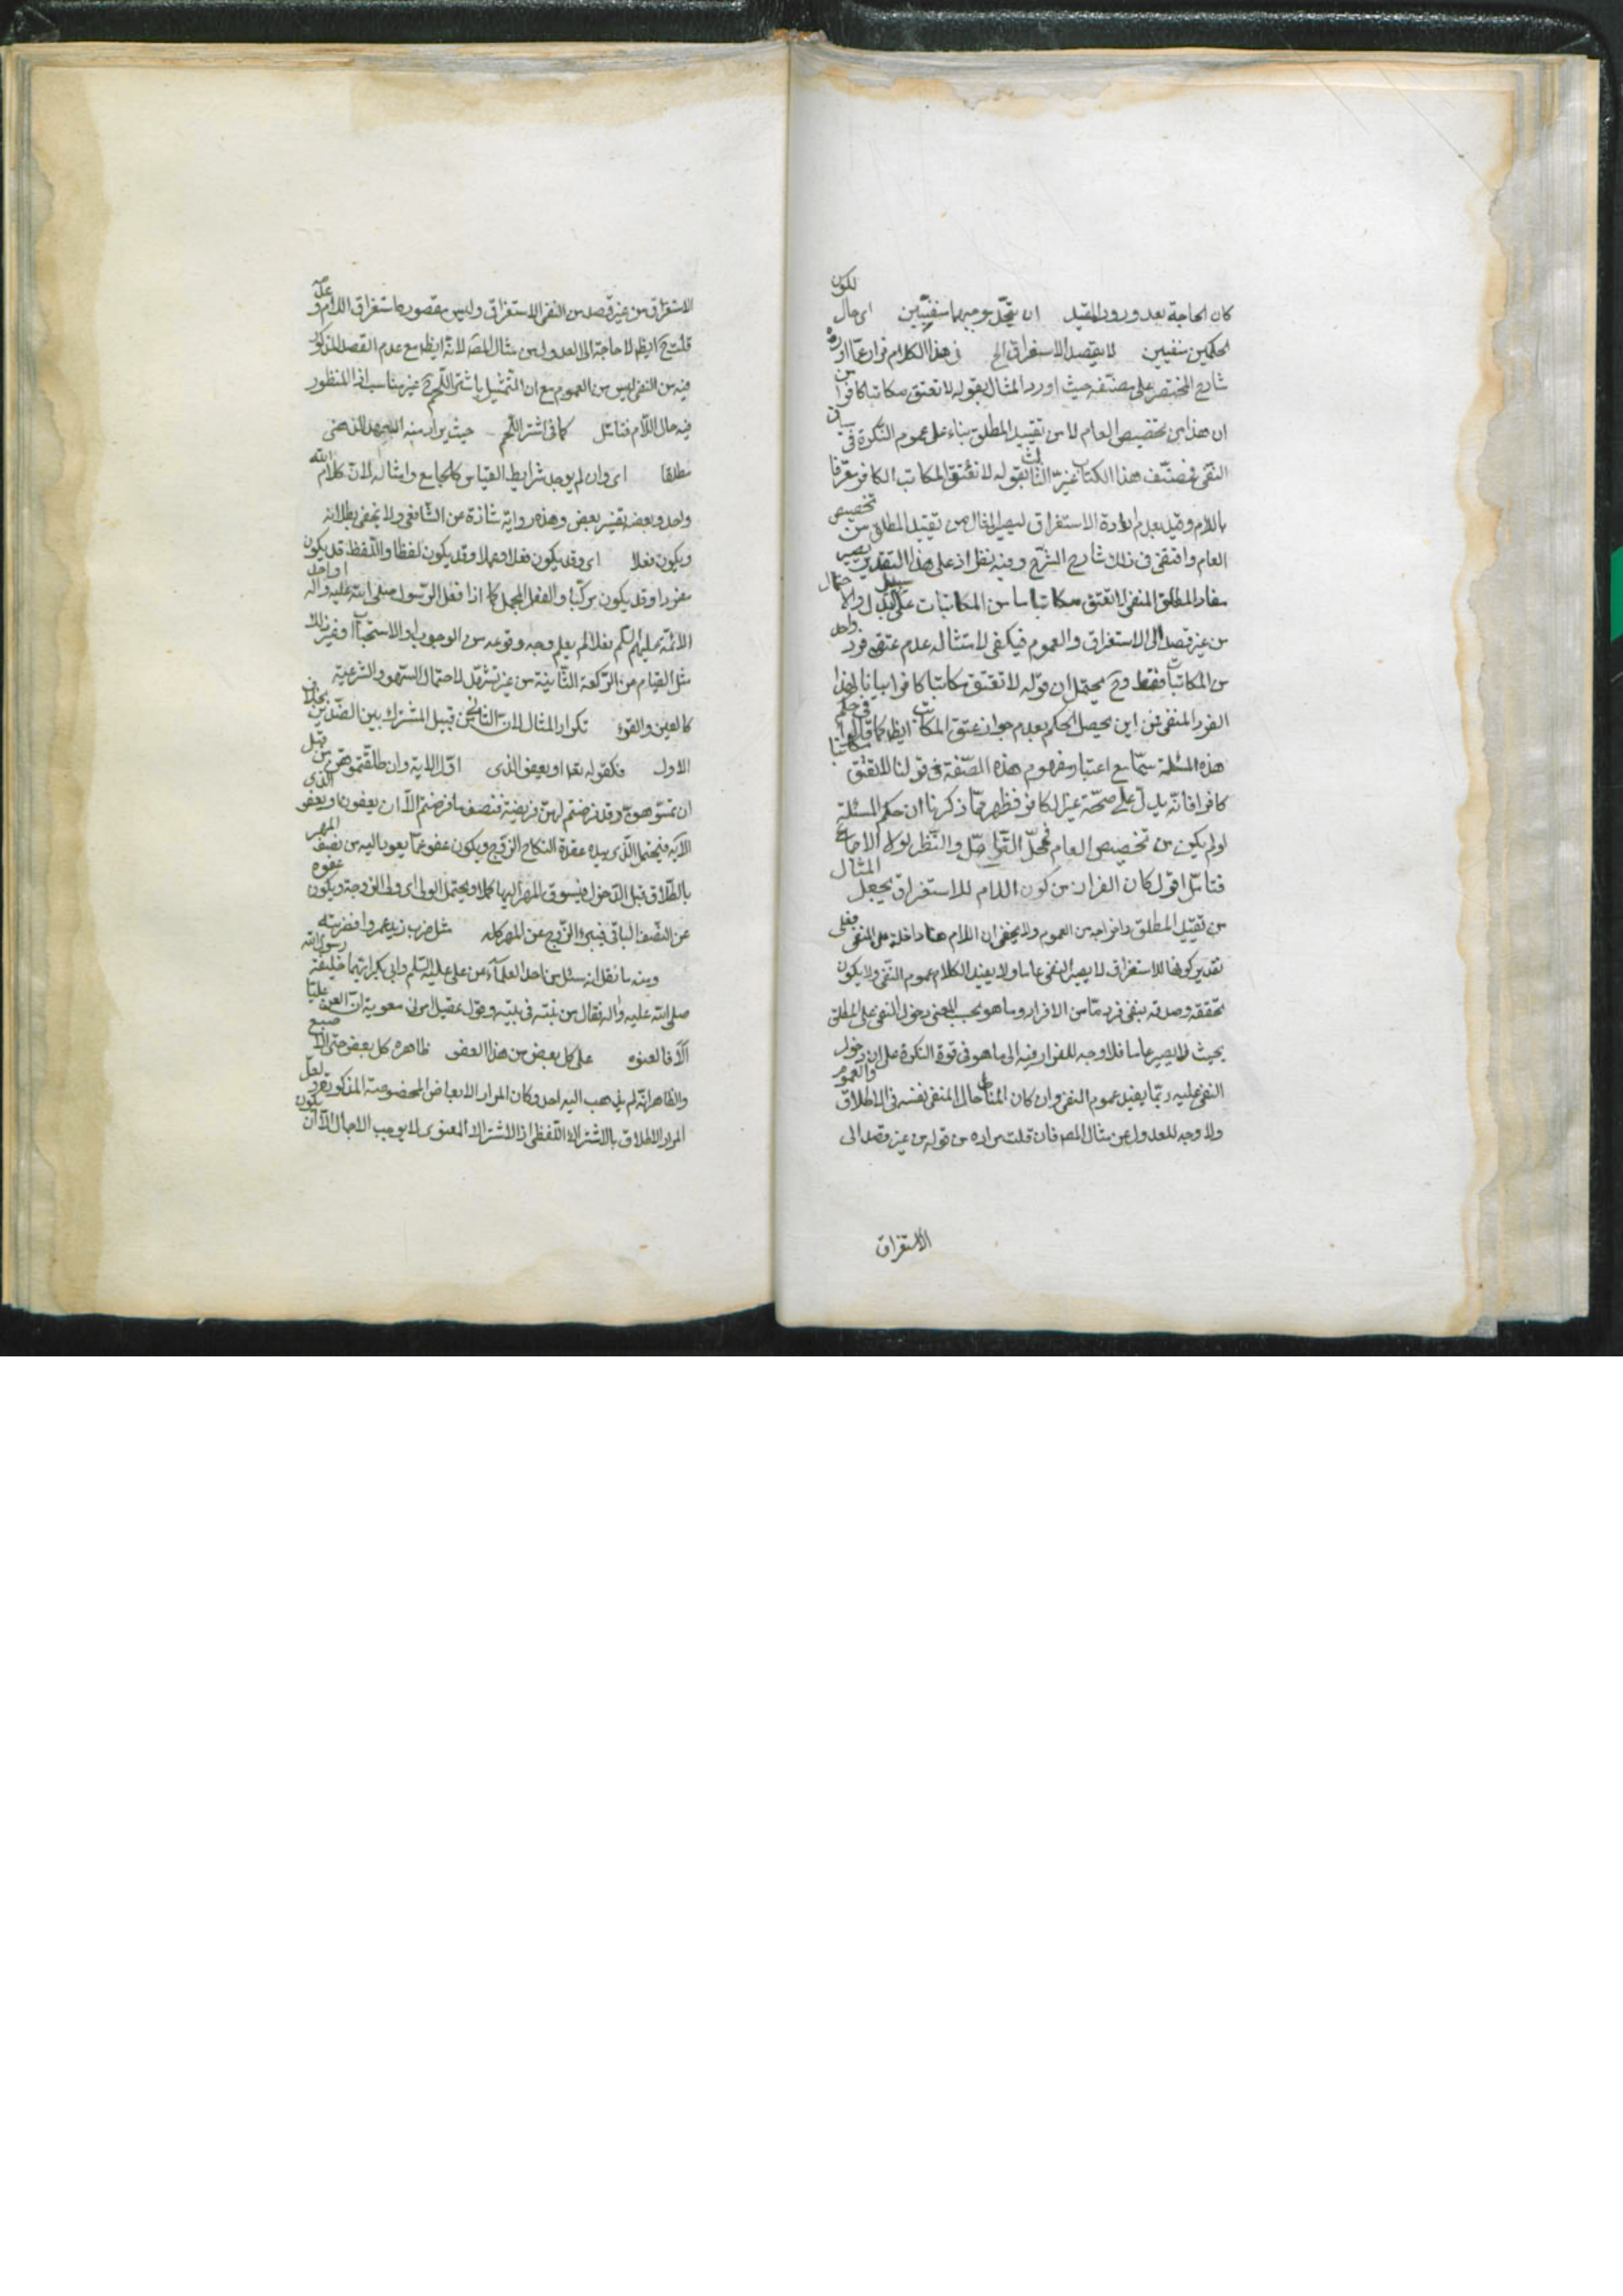 كان الحاجة بعد ورود المقيد ان يتحد موجبهما منفيين اى حال لكون
الحكمين منفيين لا يقصد الاستغراق الخ فى هذا الكلام فرار عما اورده
شارح المختصر على مصنفه حيث اورد المثال بقوله لا تعتق مكاتبا كافرا من
ان هذا من تخصيص العام لا من تقييد المطلق بناء على عموم النكرة فى سياق
النفى فمصنف هذا الكتاب غير المثال بقوله لا تعتق المكاتب الكافر معرفا
باللام وقيل بعدم ارادة الاستغراق ليصير المثال من تقييد المطلق من تخصيص
العام واقتفى فى ذلك شارح الشرح وفيه نظر اذ على هذا التقدير يصير
مفاد المطلق المنفى لا تعتق مكاتبا ما من المكاتبات على سبيل البدل والاحتمال
من غير قصد الى الاستغراق والعموم فيكفى لامتثاله عدم عتق فرد واحد
من المكاتب فقط وح يحتمل ان قوله لا تعتق مكاتبا كافرا بيانا لهذا
الفرد المنفى فمن اين يحصل الحكم بعدم جواز عتق المكاتب ايضا كما قالوا فى حكم
هذه المسئلة سيما مع اعتبار مفهوم هذه الصفة فى قولنا لا تعتق مكاتبا
كافرا فانه يدل على صحة غير الكافر فظهر مما ذكرنا ان حكم المسئلة
لو لم يكن من تخصيص العام فمحل التواصل والنظر لولا الاجماع
فتامل اقول كان الفرار من كون اللام للاستغراق يجعل المثال
من تقييد المطلق واخراجه من العموم ولا يخفى ان اللام هنا داخلة على المنفى فعلى
تقدير كونها للاستغراق لا يصير النفى عاما ولا يفيد الكلام عموم النفى ولا يكون
تحققه وصدقه بنفى فرد ما من الافراد وما هو بحسب المعنى دخول النفى على المطلق
بحيث لا يصير عاما فلا وجه للفرار فيه الى ما هو فى قوة النكرة على ان دخول
النفى عليه ربما يفيد عموم النفى وان كان المناط حال المنفى نفسه فى الاطلاق والعموم
ولا وجه للعدول عن مثال المص فان قلت مراده من قوله من غير قصد الى
الاستغراق
الاستغراق من غير قصد من النفى الاستغراق وليس مقصوره استغراق اللام وعدمه
قلت ح ايضا لا حاجة الى العدول من مثال المص لانه ايضا مع عدم القصد المذكور
فيه من النفى ليس من العموم مع ان التمثيل باشتر اللحم ح غير مناسب اذ المنظور
فيه حال اللام فتامل كما فى اشتر اللحم حيث يراد منه المعهود الذهنى
مطلقا اى وان لم يوجد شرايط القياس كالجامع وامثاله لان كلام الله
واحد وبعضه يفسر بعض وهذه رواية شاذة عن الشافعى ولا يخفى بطلانه
ويكون فعلا اى وقد يكون فعلا وعملا وقد يكون لفظا واللفظ قد يكون
مفردا وقد يكون مركبا والفعل المجمل كما اذا فعل الرسول صلى الله عليه واله او احد
الائمة عليهم السلم فعلا لم يعلم وجه وقوعه من الوجوب او الاستحباب او غير ذلك
مثل القيام من الركعة الثانية من غير تشهد لاحتمال السهو والشرعية
كالعين والقرء تكرار المثال لان الثانى من قبيل المشترك بين الضدين بخلاف
الاول فكقوله تعا او يعفو الذى اول الاية وان طلقتموهن من قبل
ان تمسوهن وقد فرضتم لهن فريضة فنصف ما فرضتم الا ان يعفون او يعفو الذى
الاية فيحتمل الذى بيده عقدة النكاح الزوج ويكون عفو عما يعود اليه من نصف المهر
بالطلاق قبل الدخول فيسوق المهر اليها كملا ويحتمل الولى اى ولى الزوجة ويكون عفوه
عن النصف الباقى فيبرئ الزوج عن المهر كله مثل ضرب زيد عمروا فضربته
ومنه ما نقل انه سئل من احد العلماء عن على عليه السلم وابى بكر ايهما خليفة رسول الله
صلى الله عليه واله فقال من بنته فى بيته وقول عقيل امرنى معوية ان العن عليا
الا فالعنوه على كل بعض من هذا العضو ظاهره كل بعض حتى الاصبع
والظاهر انه لم يذهب اليه احد وكان المراد الابعاض المخصوصة المذكورة ولعل
المراد الاطلاق بالاشتراك اللفظى اذ الاشتراك المعنوى لا يوجب الاجمال الا ان يكون